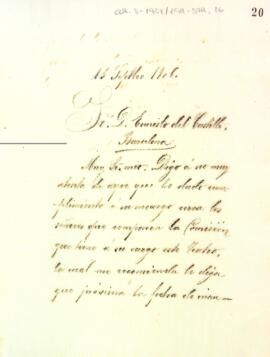 20
15 Septbre 1906.
Sr. D. Ernesto del Castillo.
Barcelona
Muy Sr. mio: Digo á su muy
atenta de ayer que he dado cum-
plimiento á su encargo cerca los
señores que componen la Comisión
que tiene a su cargo este Teatro,
la cual me recomienda le diga
que próxima la fecha de man-